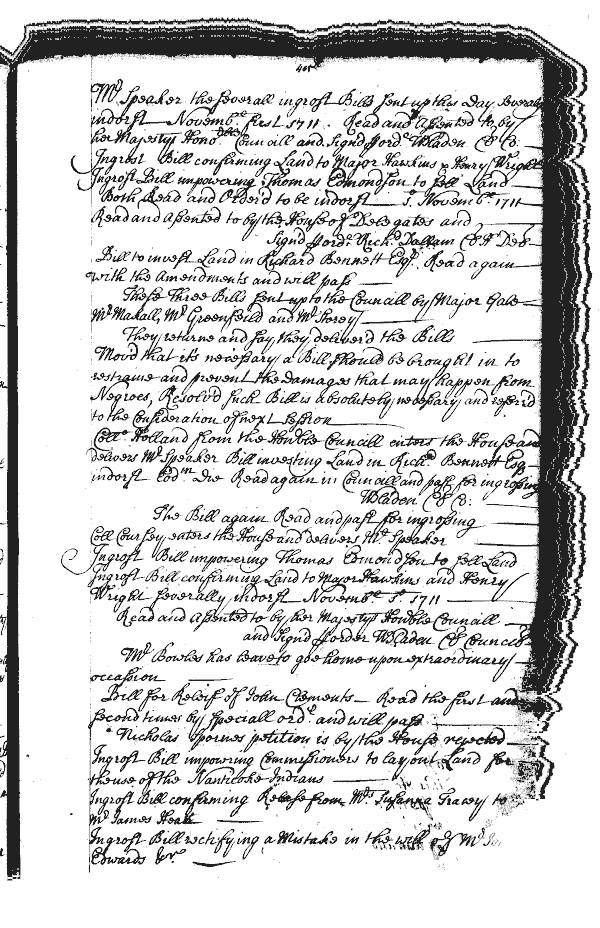 Mr Speaker the severall ingrost Bills sent up this day severally
indorst Novembr first 1711. Read and assented to by
her Majestys Honoble Councill and Signd p ordr WBladen Cl Co:
Ingrost Bill confirming Land to Major Hawkins & Henry Wright
Ingrost Bill impowering Thomas Edmondson to sell Land
Both Read and Orderd to be indorst 1st Novembr 1711
Read and assented to by the House of Delegates and
Signd p ordr Richd Dallam Cl Hs Del
Bill to invest Land in Richard Bennett Esqr. Read again
with the Amendments and will pass
These Three Bills sent up to the Councill by Major Gale
Mr Makall, Mr Greenfeild and Mr Storey
They returne and say they deliverd the Bills
Movd that its necessary a Bill should be brought in to
restraine and prevent the damages that may happen from
Negroes, Resolvd such Bill is absolutely necessary and referrd
to the Consideration of next Session
Collo Holland from the Honble Councill enters the House and
delivers Mr Speaker Bill investing Land in Richd Bennett Esqr
indorst Eodm Die Read again in Councill and past for ingrossing
WBladen Cl Co:
The Bill again Read and past for ingrossing
Coll Coursey enters the House and delivers Mr Speaker
Ingrost Bill impowering Thomas Edmondson to sell Land
Ingrost Bill confirming Land to Major Hawkins and Henry
Wright severally indorst Novembr 1st 1711
Read and assented to by her Majestys Honble Councill
and Signd p order WBladen Cl Council
Mr Bowles has leave to goe home upon extraordinary
occassion
Bill for Releif of John Clements Read the first and
second times by speciall ordr and will pass
Nicholas Spornes petition is by the House rejected
Ingrost Bill impowring Commissioners to lay out Land for
the use of the Nanticoke Indians
Ingrost Bill confirming Release from Mrs Susanna Gracey to
Mr James Heath
Ingrost Bill rectifying a Mistake in the will of Mr
Edwards &c